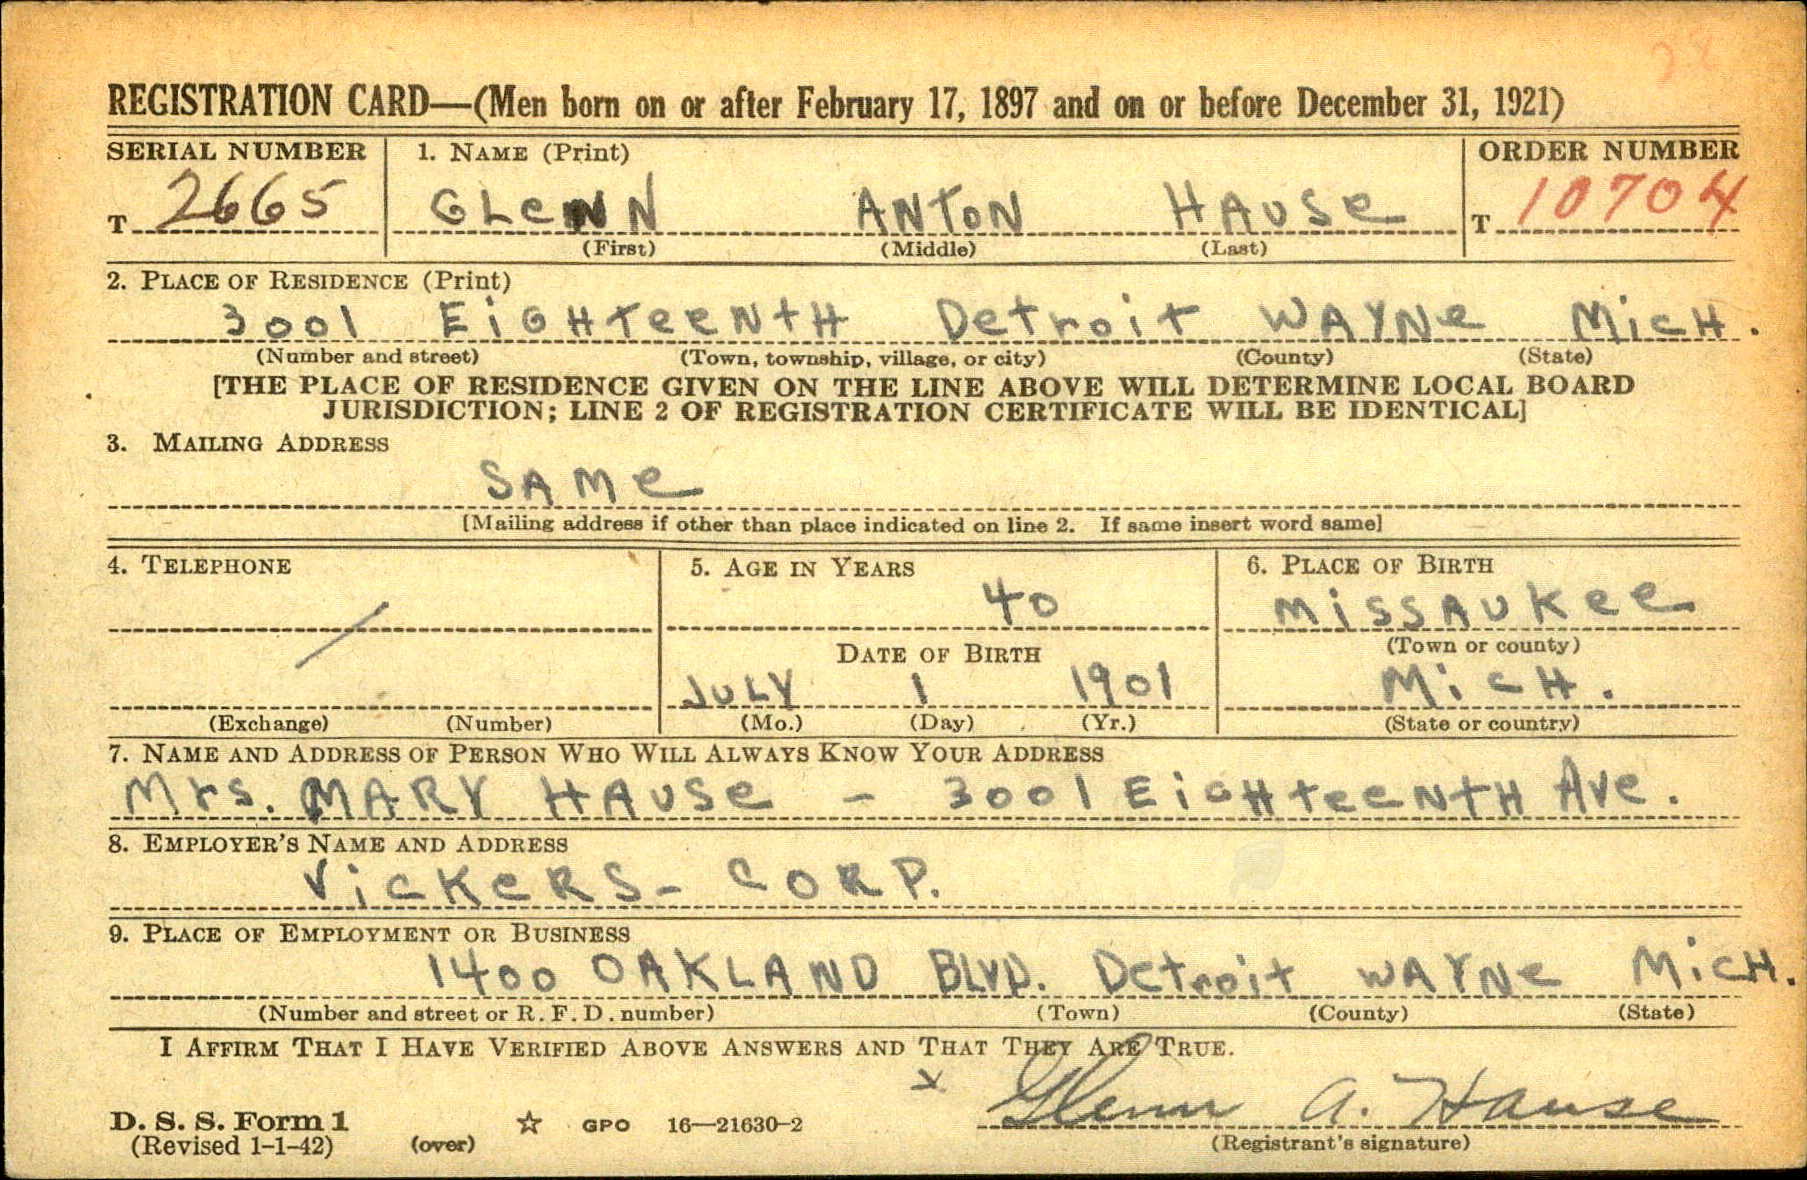 28
REGISTRATION CARD—(Men born on or after February 17, 1897 and on or before December 31, 1921)
SERIAL NUMBER 1. NAME (Print) ORDER NUMBER
T 2665 GLeNN ANTON HAUSe T 10704
(First) (Middle) (Last)
2. PLACE OF RESIDENCE (Print)
3001 EiGHTeeNtH Detroit WAYNe MicH.
(Number and street) (Town, township, village, or city) (County) (State)
[THE PLACE OF RESIDENCE GIVEN ON THE LINE ABOVE WILL DETERMINE LOCAL BOARD
JURISDICTION; LINE 2 OF REGISTRATION CERTIFICATE WILL BE IDENTICAL]
3. MAILING ADDRESS
SAMe
[Mailing address if other than place indicated on line 2. If same insert word same]
4. TELEPHONE 5. AGE IN YEARS 6. PLACE OF BIRTH
40 MiSSAUKee
DATE OF BIRTH (Town or county)
JULY 1 1901 MicH.
(Exchange) (Number) (Mo.) (Day) (Yr.) (State or country)
7. NAME AND ADDRESS OF PERSON WHO WILL ALWAYS KNOW YOUR ADDRESS
Mrs. MARY HAUSe – 3001 EiGHteeNtH Ave.
8. EMPLOYER'S NAME AND ADDRESS
VicKeRS- CORP.
9. PLACE OF EMPLOYMENT OR BUSINESS
1400 OAKLAND BLVD. Detroit WAYNe MicH.
(Number and street or R. F. D. number) (Town) (County) (State)
I AFFIRM THAT I HAVE VERIFIED ABOVE ANSWERS AND THAT THEY ARE TRUE.
x Glenn A. Hause
D. S. S. Form 1 ☆ GPO 16—21630-2
(Revised 1-1-42) (over) (Registrant's signature)